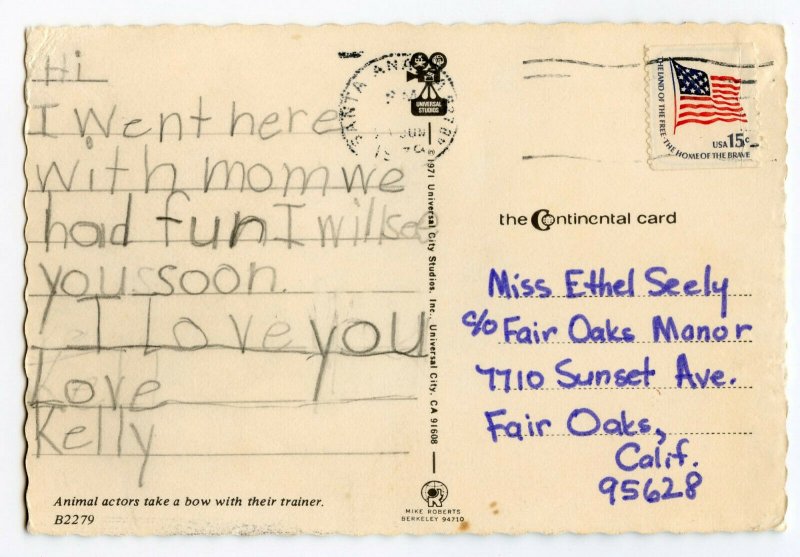 Hi
I Went here
with mom we
had fun I will see
you soon.
I Love you
Love
Kelly
Animal actors take a bow with their trainer.
B2279
SANTA ANA
PM
JUN
UNIVERSAL
STUDIOS
© 1971 Universal City Studios, Inc., Universal City, CA 91608
MIKE ROBERTS
BERKELEY 94710
THE LAND OF THE FREE·THE HOME OF THE BRAVE
USA 15c
the Continental card
Miss Ethel Seely
c/o Fair Oaks Manor
7710 Sunset Ave.
Fair Oaks,
Calif.
95628